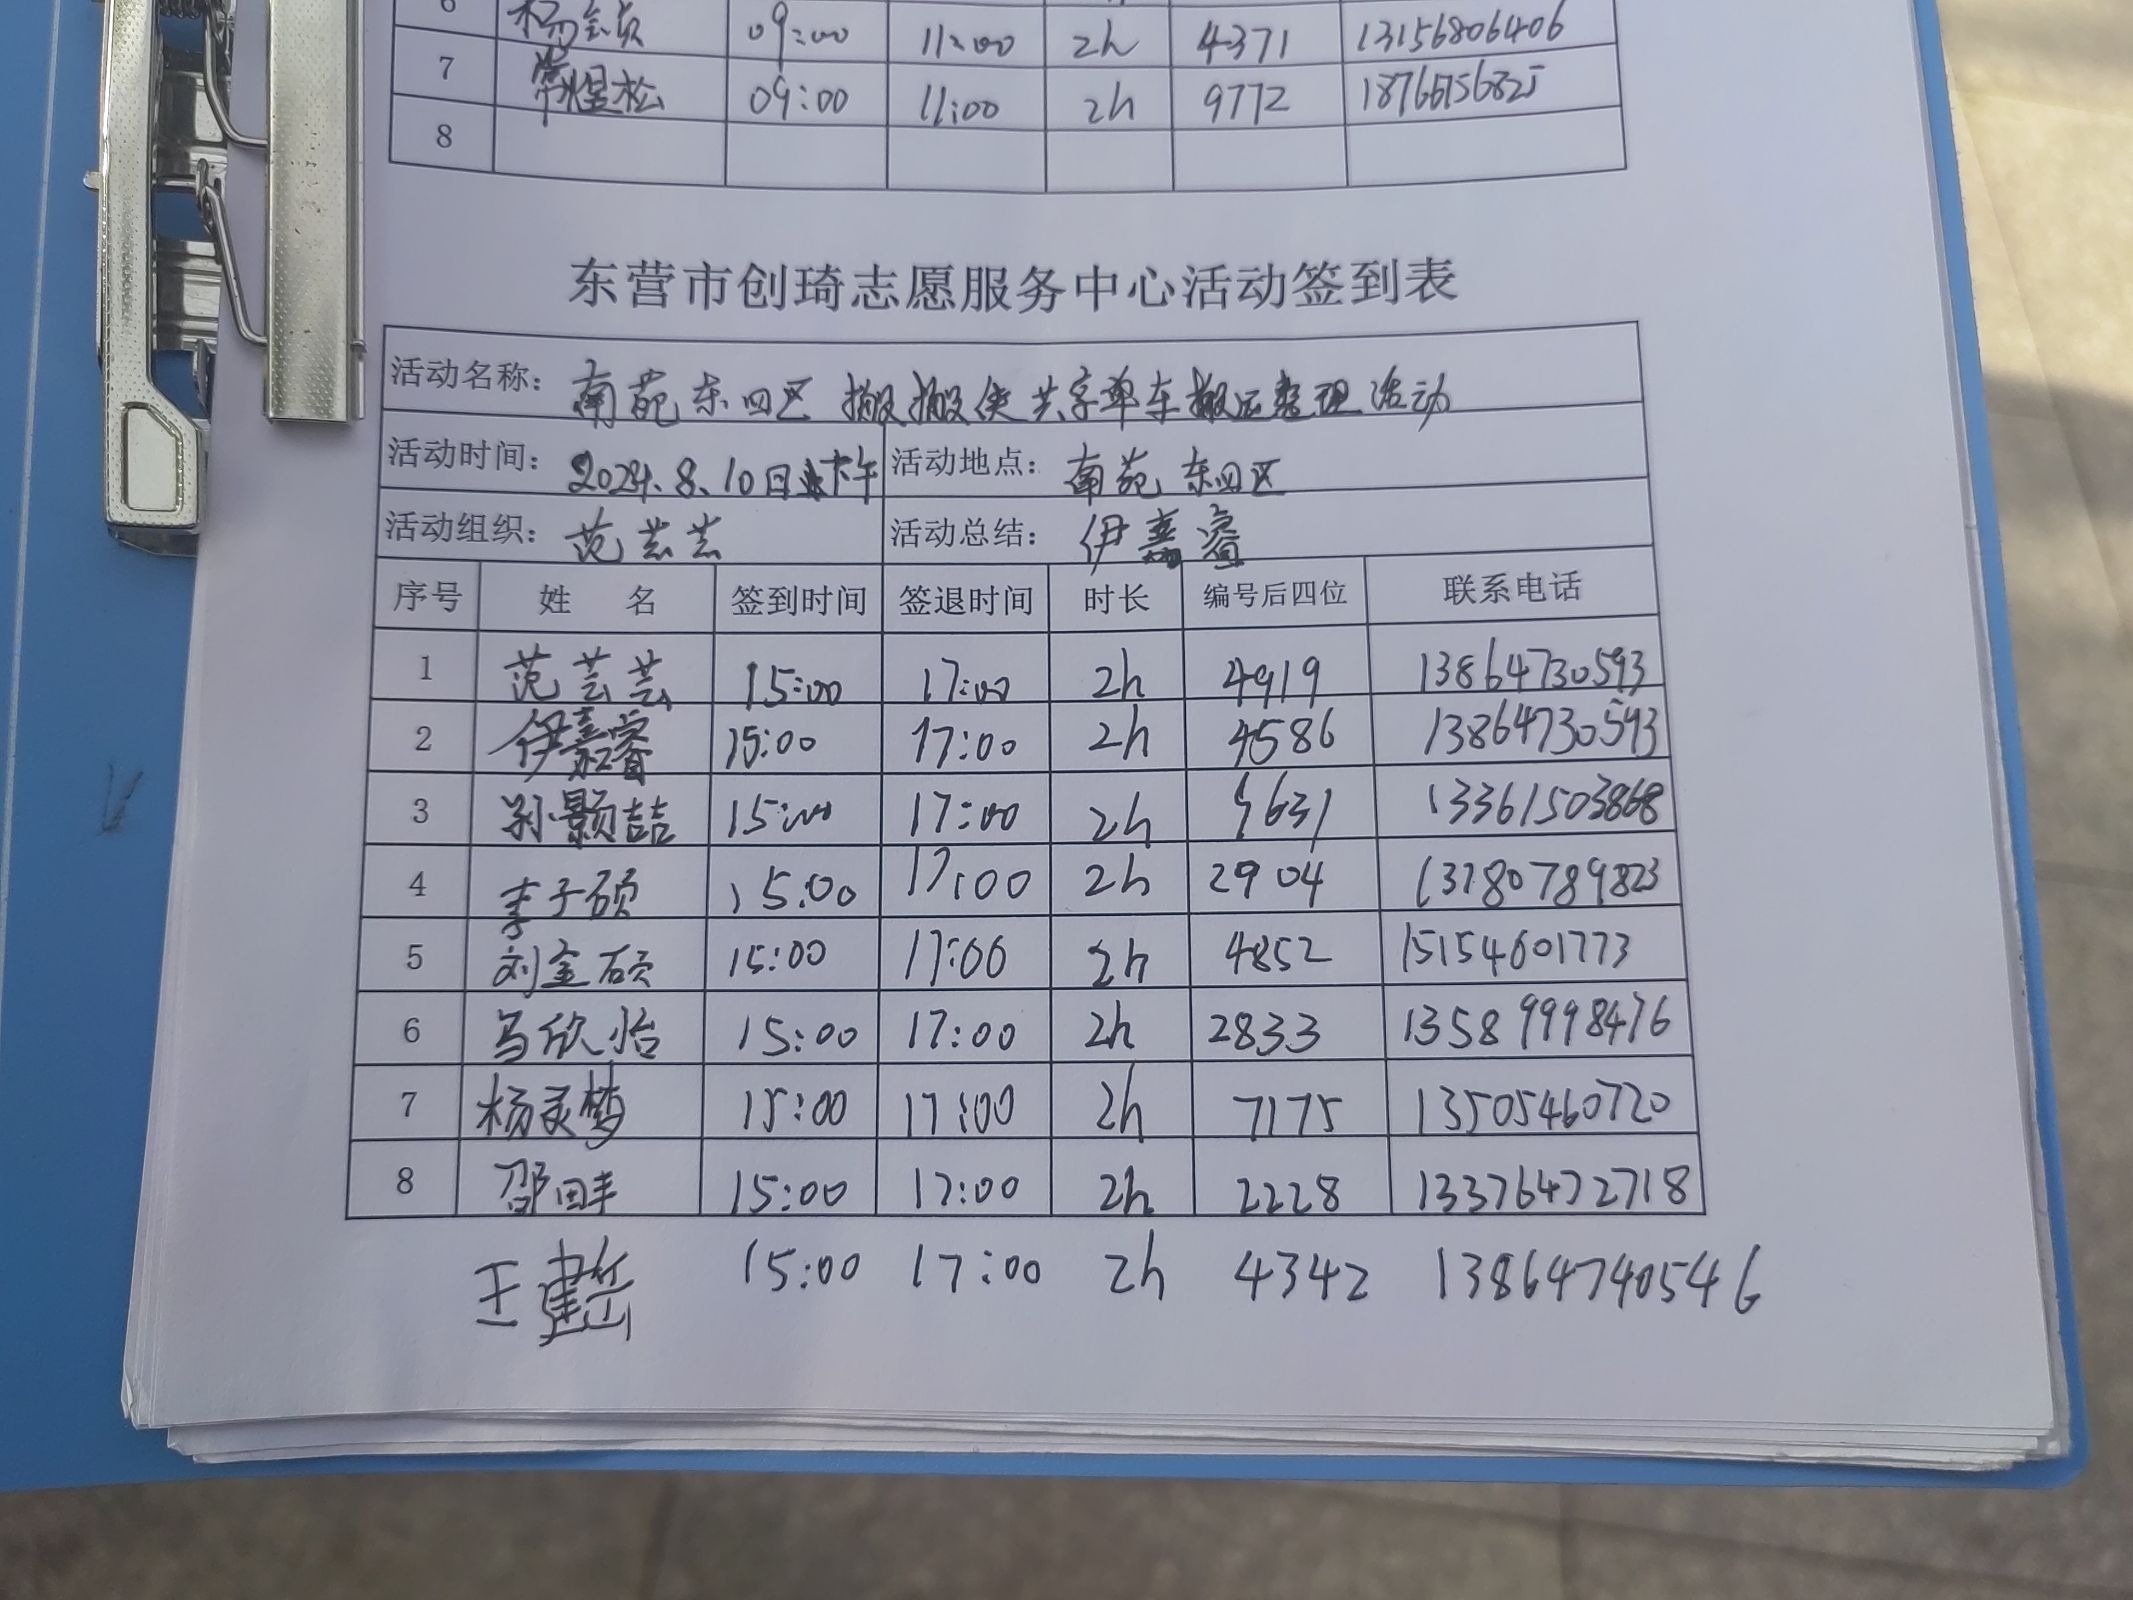 6 杨 09:00 11:00 2h 4371 13156806406
7 常煜松 09:00 11:00 2h 9772 18766756825
8
东营市创琦志愿服务中心活动签到表
活动名称： 南苑东四区 搬搬侠共享单车搬运整理活动
活动时间： 2024.8.10日下午 活动地点： 南苑东四区
活动组织： 范芸芸 活动总结： 伊嘉睿
序号 姓 名 签到时间 签退时间 时长 编号后四位 联系电话
1 范芸芸 15:00 17:00 2h 4919 13864730593
2 伊嘉睿 15:00 17:00 2h 4586 13864730593
3 孙颢喆 15:00 17:00 2h 5631 13361503868
4 李子硕 15:00 17:00 2h 2904 13780789823
5 刘金硕 15:00 17:00 2h 4852 15154601773
6 马欣怡 15:00 17:00 2h 2833 13589998476
7 杨灵梦 15:00 17:00 2h 7175 13505460720
8 邵田丰 15:00 17:00 2h 2228 13376472718
王建岳 15:00 17:00 2h 4342 13864740546